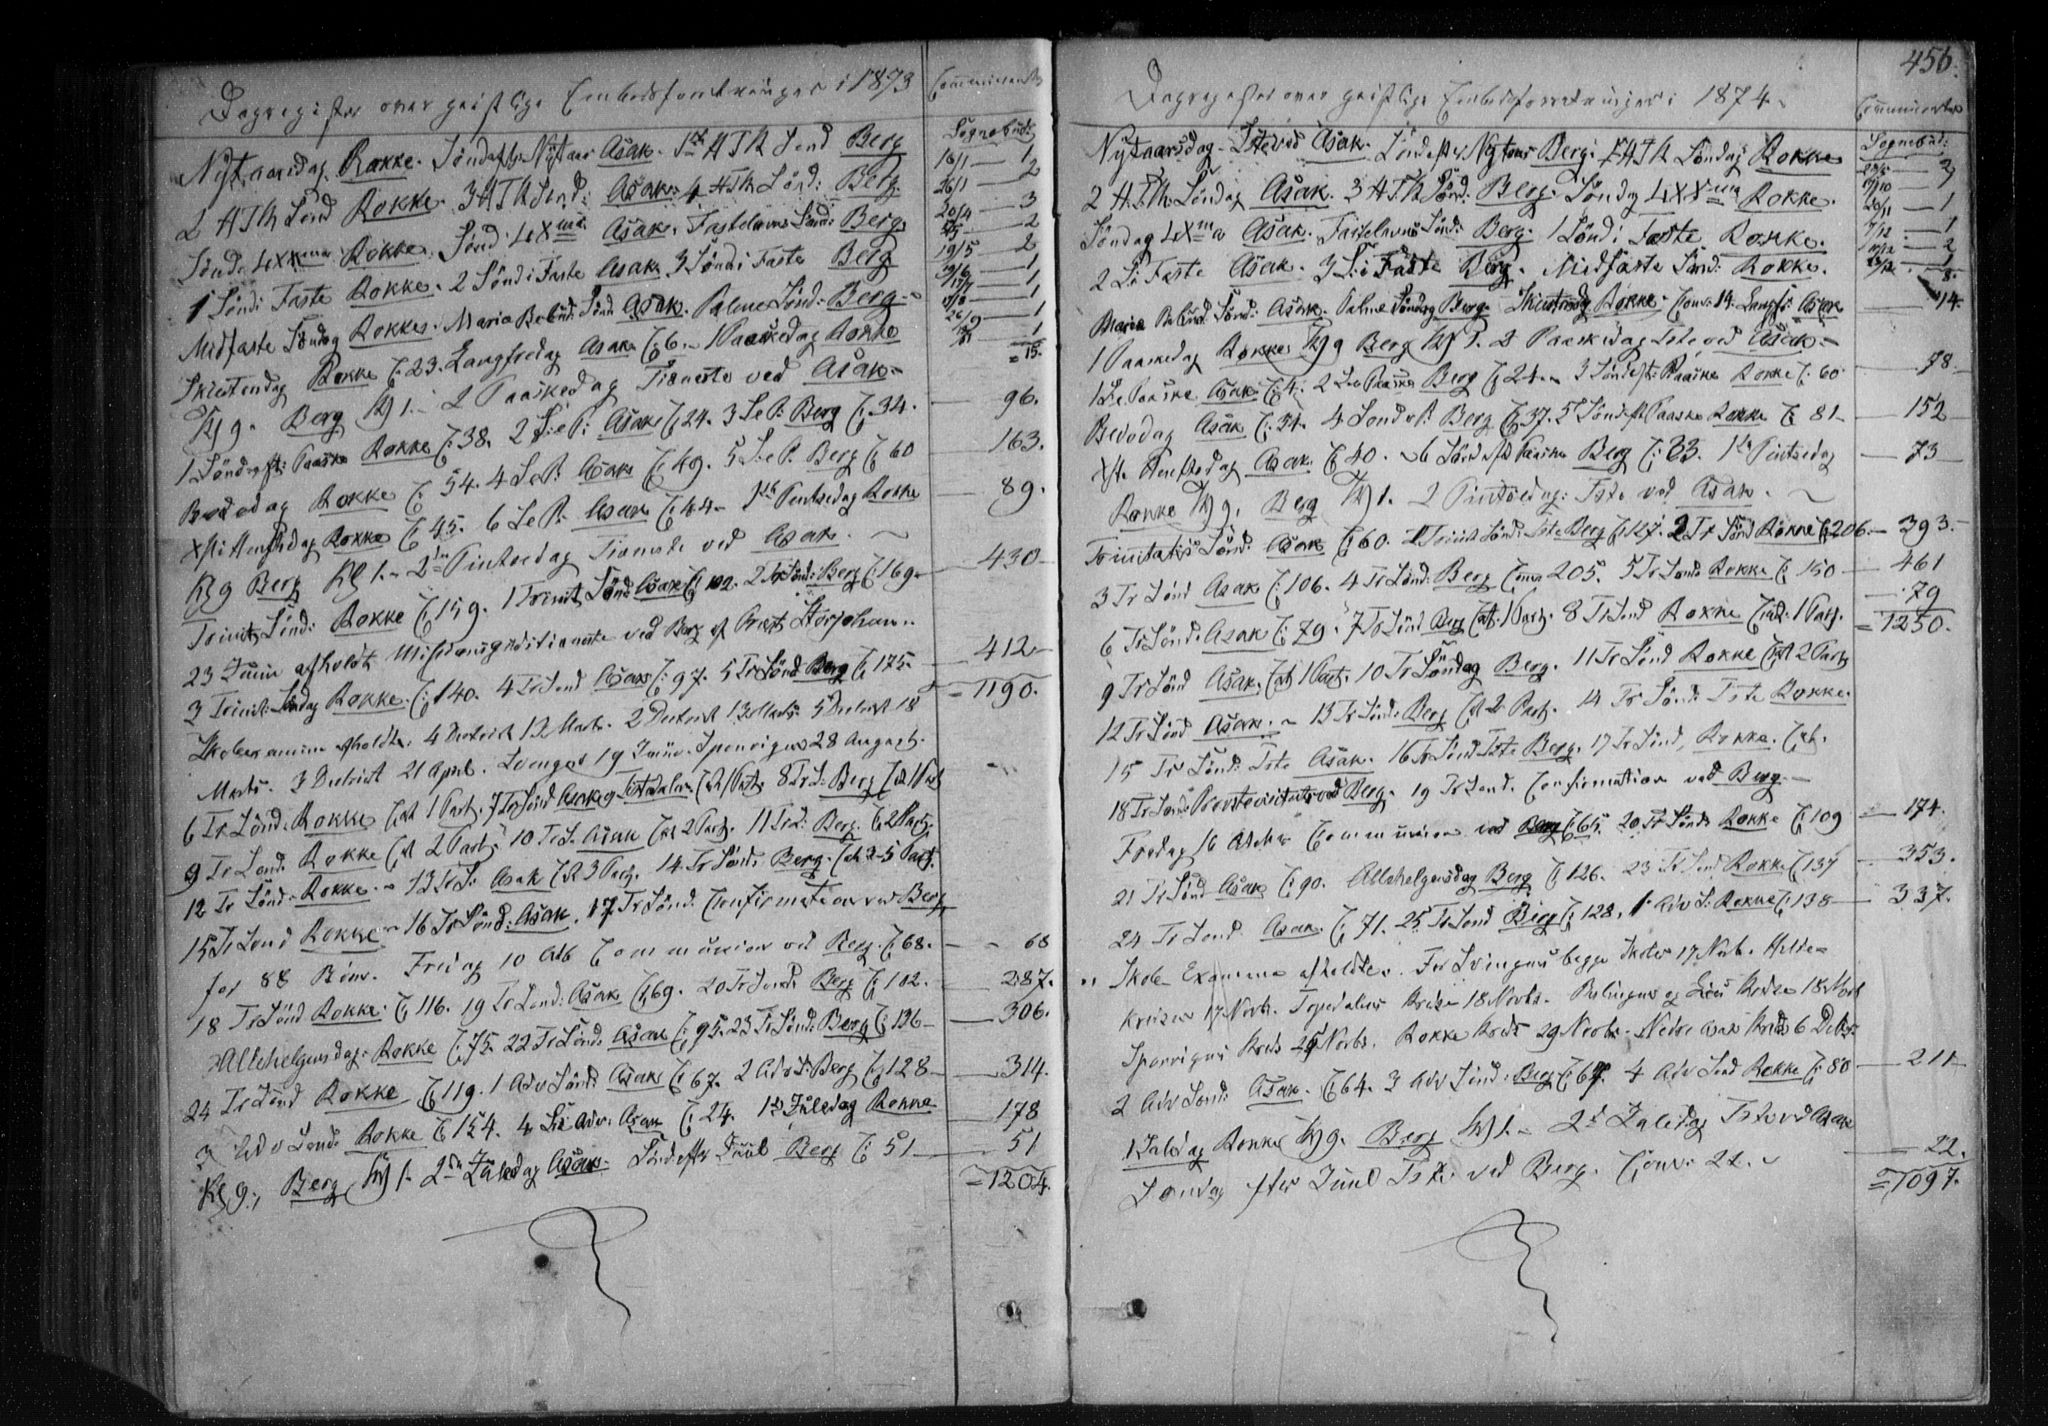 Dagregister over geistlige Embedsforretninger i 1873
Communicanter
Nytaarsdag Rokke. Søndag eft: Nytaar Asak. 1ste H T K Sønd Berg
Sognebud:
16/1 — 1
2 H T K Sønd Rokke. 3 H T K Sønd: Asak. 4 H T K Sønd: Berg.
26/1 — 2
Rokke. Sønd: LXma Asak. Fastelavns Sønd: Berg.
20/4 — 3
— 2
1 Sønd: Faste Rokke. 2 Sønd i Faste Asak. 3 Sønd i Faste Berg
19/5 — 2
— 1
Midfaste Søndag Rokke. Maria Bebud: Sønd Asak. Palme Sønd: Berg.
— 1
— 1
26/9 — 1
— 1
Skjertorsdag Rokke C: 23. Langfredag Asak C: 6. 1 Paaskedag Rokke
= 15.
Kl 9. Berg Kl 1. 2 Paaskedag Tjeneste ved Asak.
— 96.
1 Sønd eft: Paaske Rokke C: 38. 2 S: e P: Asak C: 24. 3 S e P: Berg C: 34.
— 163.
Bededag Rokke C: 54. 4 S e P: Asak C: 49. 5 S: e P: Berg C: 60
— 89.
Xsti Himfdag Rokke C: 45. 6 S e P: Asak C: 44. 1ste Pintsedag Rokke
Kl 9 Berg Kl 1. 2den Pintsedag Tjeneste ved Asak.
— 430
Trinit: Sønd: Rokke C: 159. 1 Trinit Sønd Asak C: 102. 2 Tr Sønd: Berg C: 169.
23 Juni afholdt Missionsgudstjeneste ved Berg af Præst Storjohan.
— 412
3 Trinit: Søndag Rokke. C: 140. 4 Tr Sønd Asak C: 97. 5 Tr Sønd Berg C: 175.
= 1190.
Skoleexamina afholdt. 4 District 12 Marts. 2 District 13 Marts. 5 District 18
Marts. 3 District 21 April. 19 Juni. Sponvigen 28 August.
6 Tr Sønd: Rokke Cat 1 Part. 7 Tr Sønd Asak og Cat 1 Part. 8 Tr S: Berg Cat 1 Part
9 Tr Sønd: Rokke Cat 2 Part. 10 Tr S. Asak Cat 2 Part. 11 Tr S: Berg. C 2 Part.
12 Tr Sønd: Rokke. 13 Tr S: Asak Cat 3 Part. 14 Tr Sønd: Berg. Cat 3-5 Part.
15 Tr Sønd Rokke 16 Tr Sønd: Asak. 17 Tr Sønd: Confirmation ved Berg
for 88 Børn. Fredag 10 Octb Communion ved Berg. C: 68.
— 68
18 Tr Sønd Rokke: C: 116. 19 Tr Sønd: Asak C: 69. 20 Tr Sønd: Berg C: 102.
— 287.
Allehelgensdag: Rokke C: 75. 22 Tr Sønd: Asak C: 95. 23 Tr Sønd: Berg C: 136
— 306.
24 Tr Sønd Rokke C: 119. 1 Adv Sønd: Asak C: 67. 2 Adv S: Berg C: 128
— 314.
3 Adv Sønd: Rokke C: 154. 4 S: i Adv. Asak C: 24. 1ste Juledag Rokke
— 178
Kl 9., Berg Kl 1. 2den Juledag Asak. Sønd efter Juul Berg C: 51
— 51
= 1204.
456.
Dagregister over geistlige Embedsforretninger i 1874
Communicanter
Nytaarsdag Tjste ved Asak. Sønd efter Nytaar Berg. 1 H T K Søndag Rokke
Sognebud:
— 2
2 H. T. K. Søndag Asak. 3 H T K Sønd: Berg. Søndag LXXma Rokke.
20/11 — 1
Søndag LXma Asak. Fastelavns Sønd: Berg. 1 Sønd i Faste Rokke.
— 1
— 2
2 S: i Faste Asak. 3 S: i Faste Berg. Midfaste Sønd: Rokke.
— 1
8.
Maria Bebud: Sønd: Asak. Palme Søndag Berg. Skjertorsdg Rokke. Conv: 14. Langfr: Asak
— 14.
1 Paaskedag Rokke Kl 9 Berg Kl 1. 2 Paaskedag Tjste ved Asak.
1 S e Paaske Asak C: 4. 2 S e Paaske Berg C: 24. 3 Sønd eft: Paaske Rokke C: 60.
— 78.
Bededag Asak C: 34. 4 Sønd e P: Berg C: 37. 5 Sønd eft Paaske Rokke C: 81
— 152
Xsti Himftsdag Asak. C: 40. 6 Sønd eft Paaske Berg C: 33. 1ste Pintsedag
— 73
Rokke Kl 9, Berg Kl 1. 2 Pintsedag: Tjste ved Asak.
Trinitatis Sønd: Asak C: 60. 1 Trinit Sønd: Tjste Berg C: 127. 2 Tr Sønd Rokke C: 206.
— 393.
3 Tr Sønd Asak C: 106. 4 Tr Sønd: Berg Conv 205. 5 Tr Sønd Rokke C: 150
— 461
6 Tr Sønd: Asak C: 79. 7 Tr Sønd Berg Cat. 1 Part. 8 Tr Sønd Rokke Cat: 1 Part.
— 79
= 1250.
9 Tr Sønd Asak. Cat 1 Part. 10 Tr Søndag Berg. 11 Tr Sønd Rokke Cat 2 Part
12 Tr Sønd Asak. 13 Tr Sønd: Berg Cat 2 Part. 14 Tr Sønd: Tjste Rokke.
15 Tr Sønd: Tjste Asak. 16 Tr Sønd Tjste Berg. 17 Tr Sønd, Rokke. Cat.
18 Tr Sønd: Provstevisitats ved Berg. 19 Tr Sønd. Confirmation ved Berg.
Fredag 16 Octbr Communion ved Berg C: 65. 20 Tr Sønd: Rokke C: 109
— 174.
21 Tr Sønd Asak C: 90. Allehelgensdag Berg C: 126. 23 Tr Sønd Rokke C: 137
— 353.
24 Tr Sønd. Asak. C: 71. 25 Tr Sønd Berg C: 128. 1 Adv S: Rokke C: 138
— 337.
Skole Examina afholdtes. For begge Skoler 17 Novb.
Kredsen 17 Novb. Torpedalens Kreds 18 Novbr. og Kreds 18 Novb
Sponvigens Kreds Novbr. Rokke Kreds 29 Novbr. Nedre Kreds 6 Decbr.
2 Adv Sønd: Asak. C: 64. 3 Adv Sønd: Berg C: 67. 4 Adv Sønd Rokke C: 80
— 211
1 Juledag Rokke Kl 9. Berg Kl 1. 2d Juledag Tjste ved Asak
Søndag efter Juul Tjste ved Berg. Conv: 22.
— 22.
= 1097.